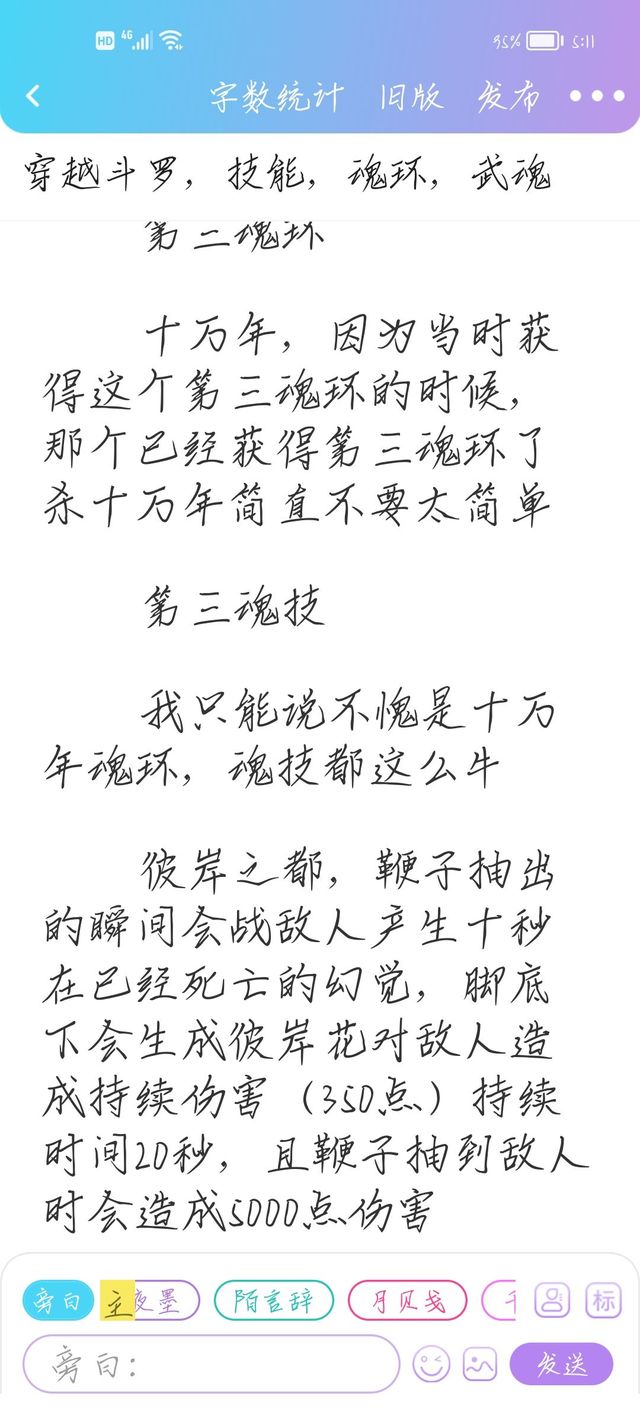 HD 4G 95% 5:11
字数统计 旧版 发布
穿越斗罗，技能，魂环，武魂
第三魂环
十万年，因为当时获
得这个第三魂环的时候，
那个已经获得第三魂环了
杀十万年简直不要太简单
第三魂技
我只能说不愧是十万
年魂环，魂技都这么牛
彼岸之都，鞭子抽出
的瞬间会战敌人产生十秒
在已经死亡的幻觉，脚底
下会生成彼岸花对敌人造
成持续伤害（350点）持续
时间20秒，且鞭子抽到敌人
时会造成5000点伤害
旁白 主 夜墨 陌言辞 月贝戋 标
旁白： 发送